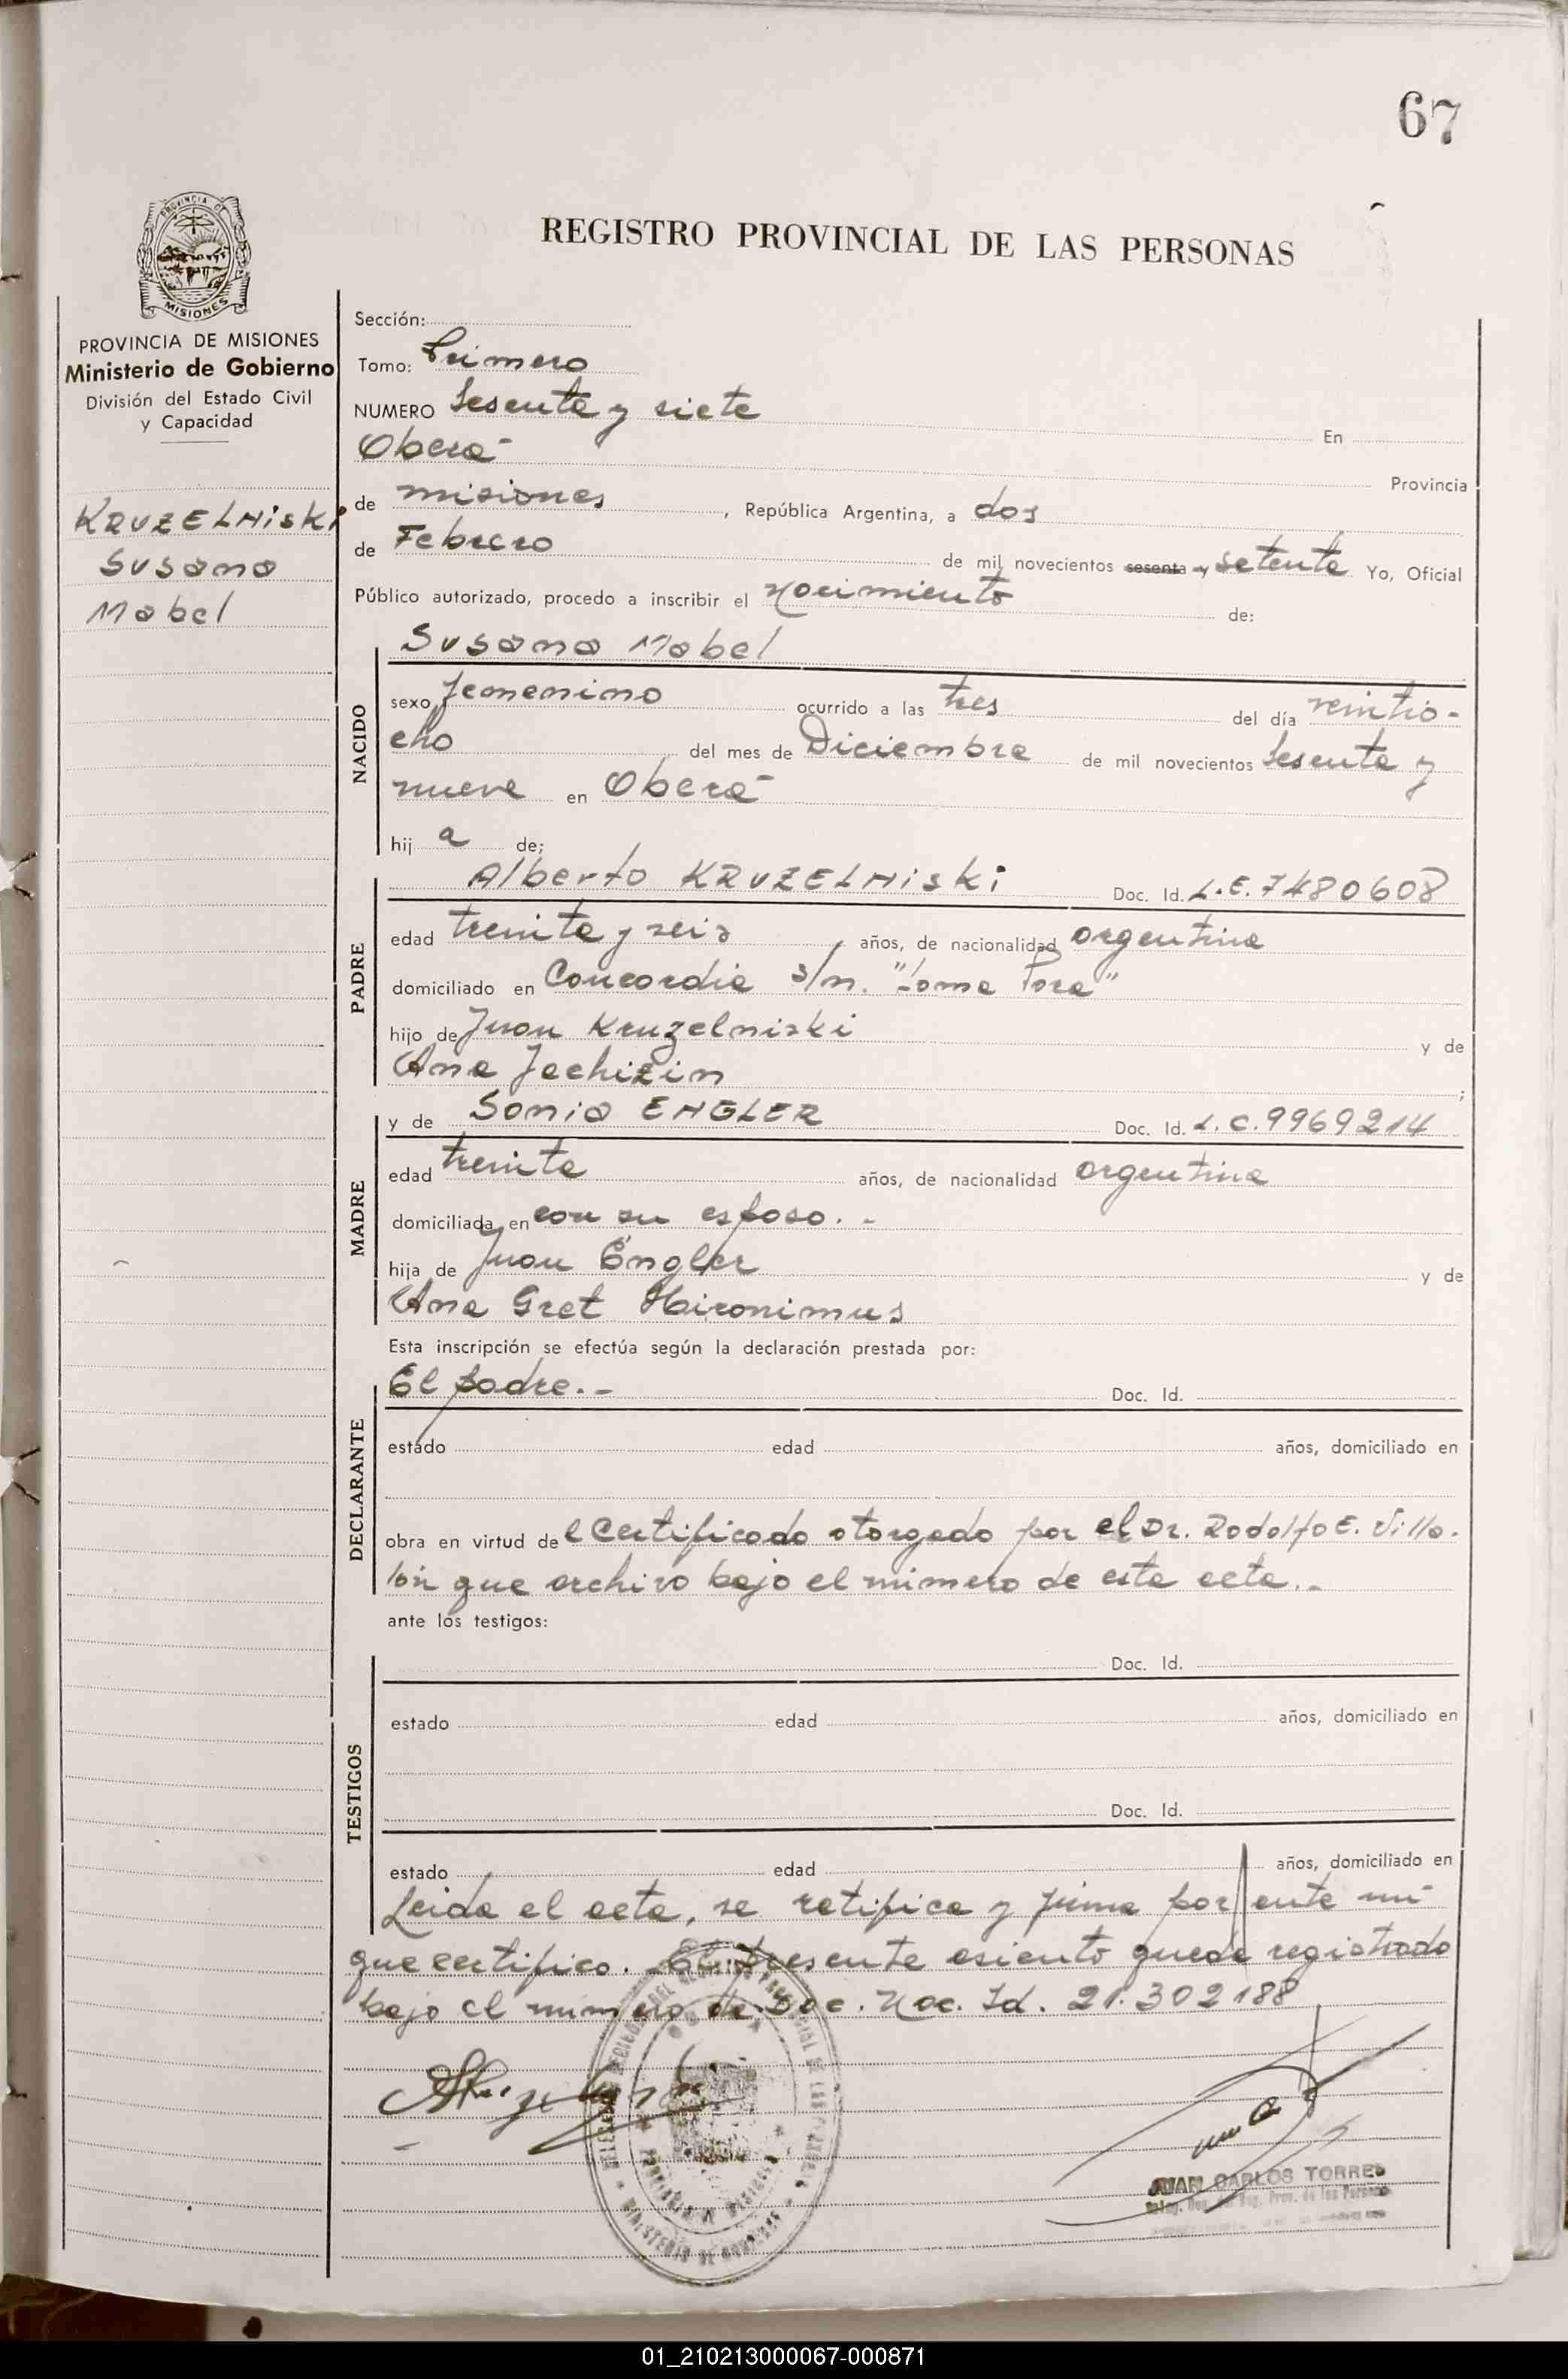 67
REGISTRO PROVINCIAL DE LAS PERSONAS
MISIONES
PROVINCIA DE MISIONES
Ministerio de Gobierno
División del Estado Civil
y Capacidad
KRUZELNiski
Susana
Mabel
Sección:
Tomo: Primero
NUMERO Sesenta y siete En
Oberá Provincia
de misiones, República Argentina, a dos
de Febrero de mil novecientos sesenta y setenta Yo, Oficial
Público autorizado, procedo a inscribir el nacimiento de:
NACIDO
Susana Mabel
sexo femenino ocurrido a las tres del día veintio-
cho del mes de Diciembre de mil novecientos sesenta y
nueve en Oberá
hij a de;
PADRE
Alberto KRUZELNiski Doc. Id. L.E. 7480608
edad treinta y seis años, de nacionalidad argentina
domiciliado en Concordia s/n. "Loma Pora"
hijo de Juan Kruzelniski y de
Ana Jechizin ;
MADRE
y de Sonia ENGLER Doc. Id. L.C. 9969214
edad treinta años, de nacionalidad argentina
domiciliada en con su esposo. -
hija de Juan Engler y de
Ana Gret Hironimus
Esta inscripción se efectúa según la declaración prestada por:
DECLARANTE
El padre. - Doc. Id.
estado edad años, domiciliado en
obra en virtud de l Certificado otorgado por el Dr. Rodolfo E. Villa.
lón que archivo bajo el número de esta acta. -
ante los testigos:
TESTIGOS
Doc. Id.
estado edad años, domiciliado en
Doc. Id.
estado edad años, domiciliado en
Leida el acta, se ratifica y firma por ante mi
que certifico. El presente asiento queda registrado
bajo el número de Doc. Nac. Id. 21.302188
MINISTERIO DE GOBIERNO
JUAN CARLOS TORRES
01_210213000067-000871